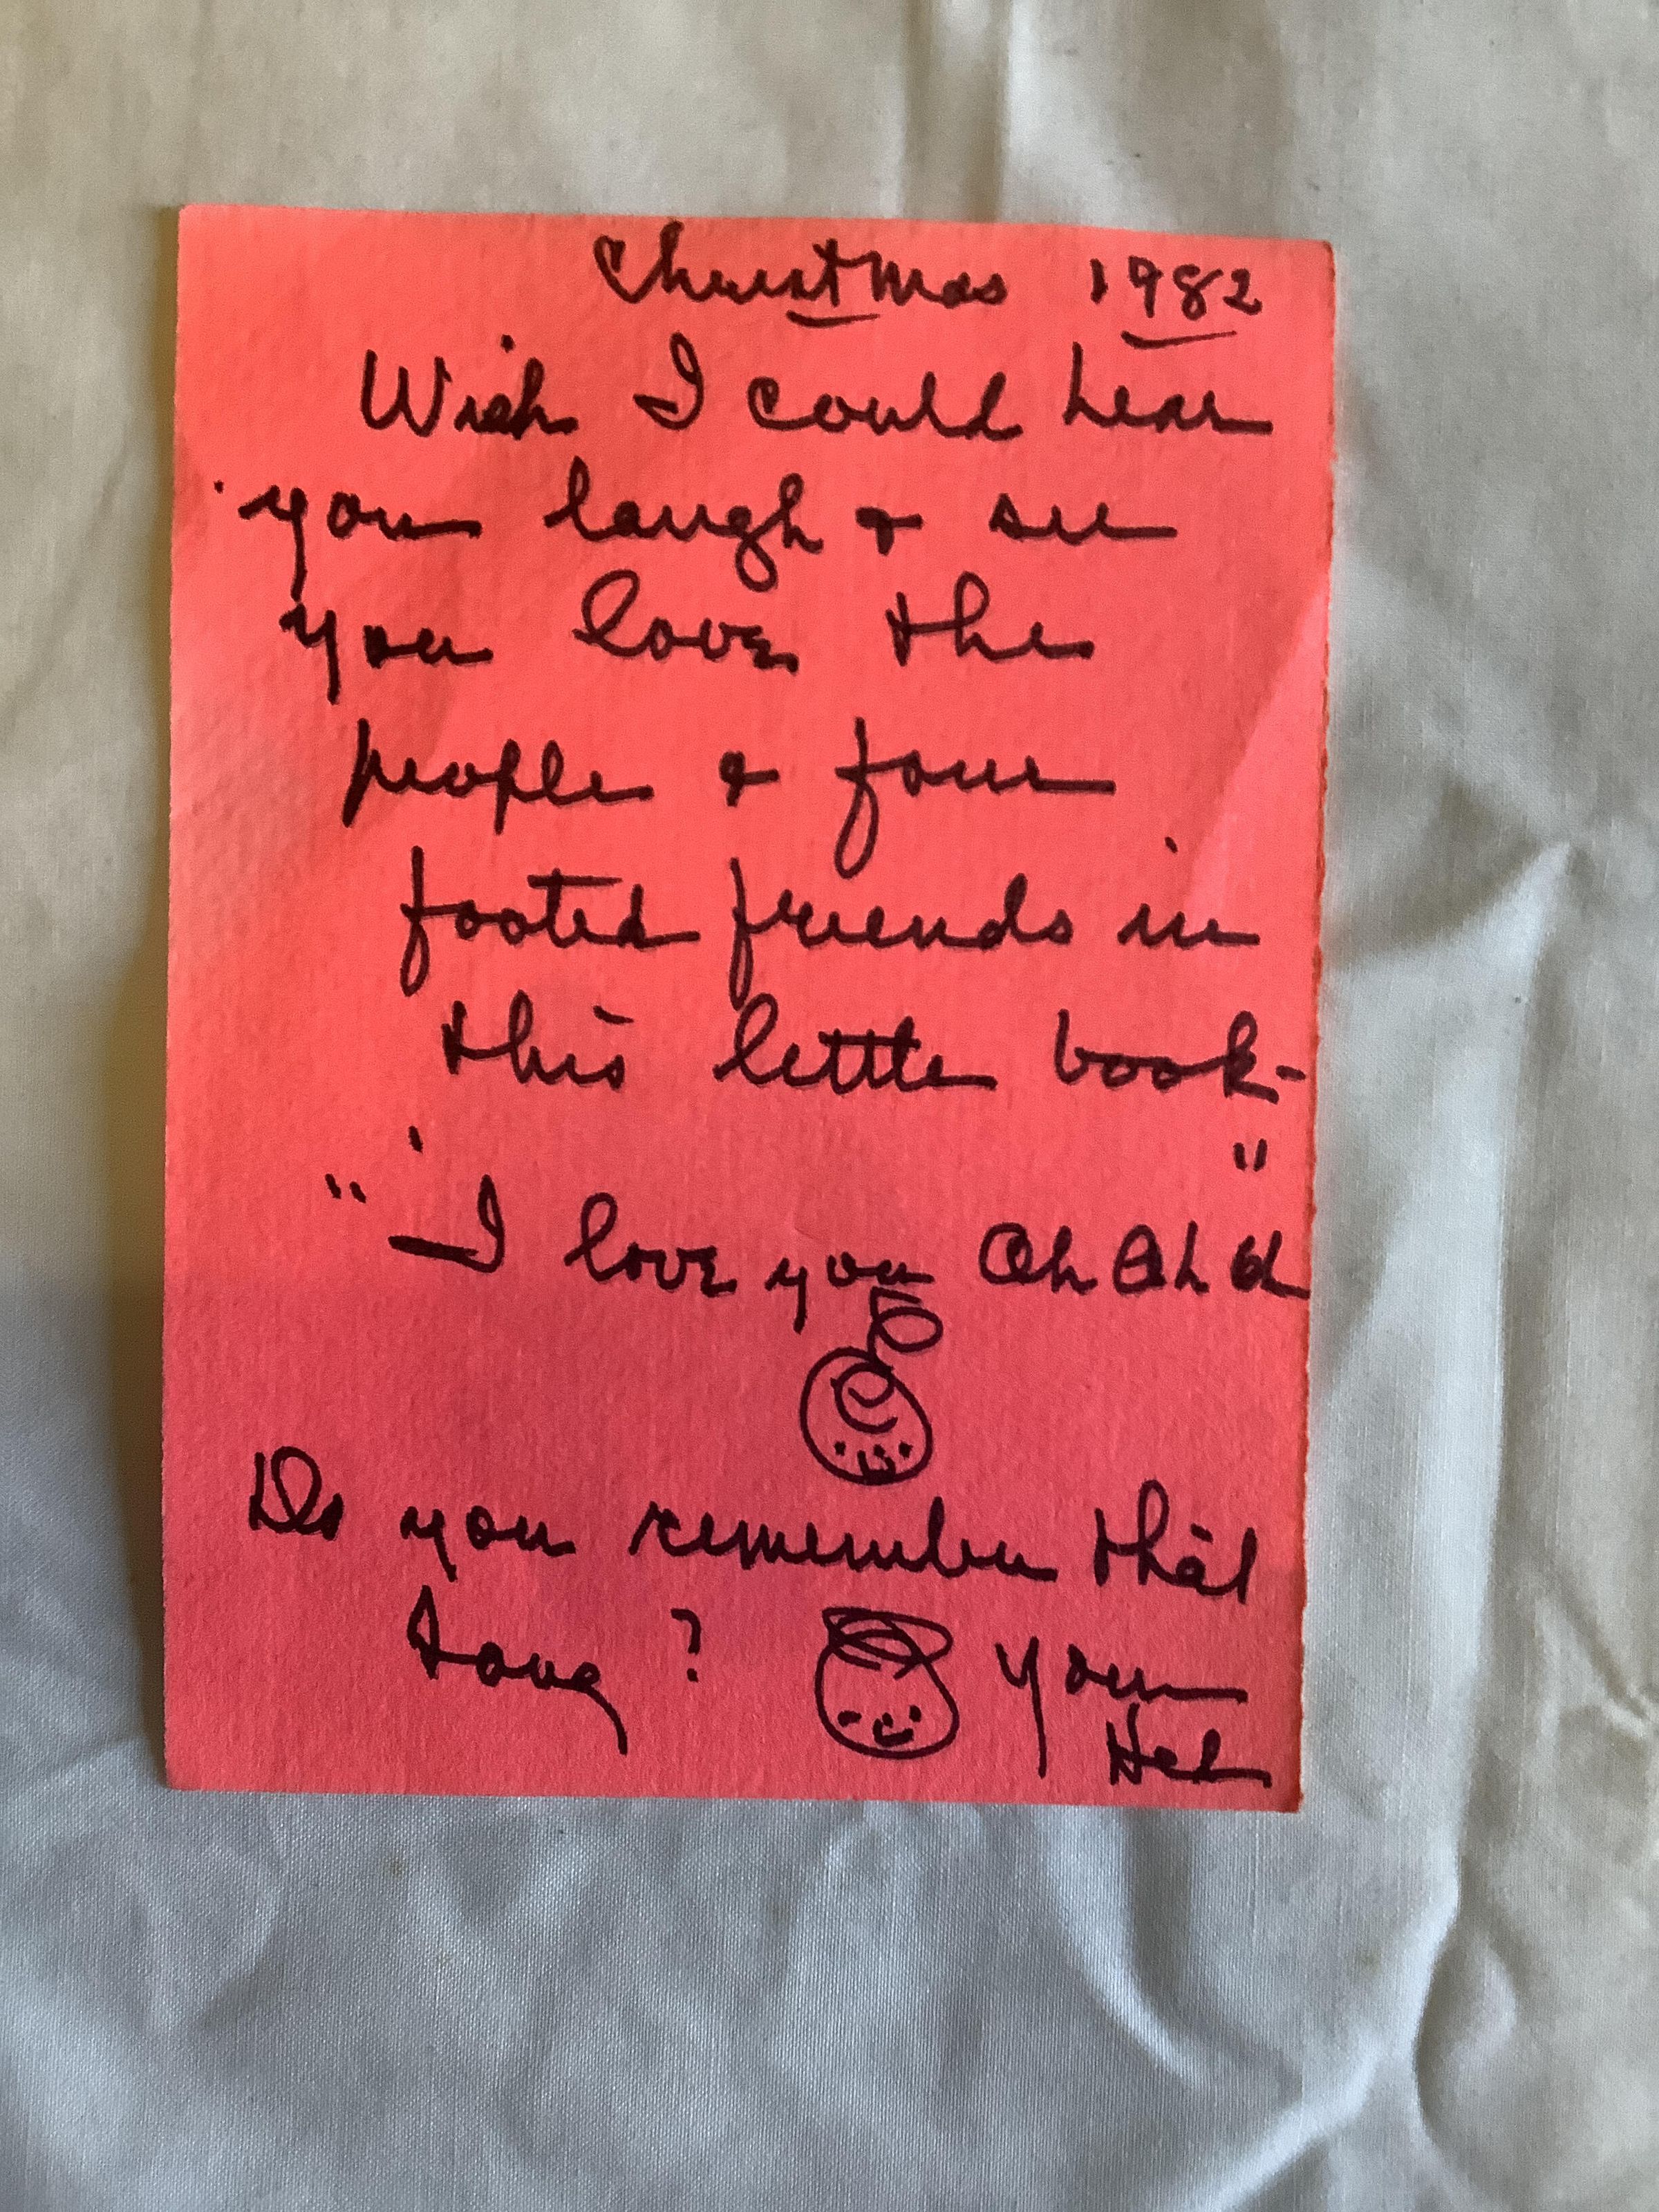 Christmas 1982
Wish I could hear
you laugh & see
you love the
people & four
footed friends in
this little book-
"I love you Oh Oh Oh"
Do you remember that
song? Your
Hel